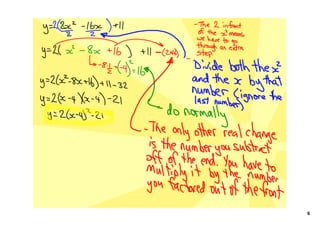 y=2(2x² -16x )+11
2 2
y=2( x² -8x +16 ) +11 -(2×16)
-8½ -(-4)²=16
y=2(x²-8x+16)+11-32
y=2(x-4)(x-4)-21
y=2(x-4)²-21
-The 2 infront
of the x² means
we have to go
through an extra
step
- Divide both the x²
and the x by that
number (ignore the
last number)
do normally
-The only other real change
is the number you substract
off of the end. You have to
multiply it by the number
you factored out of the front
5